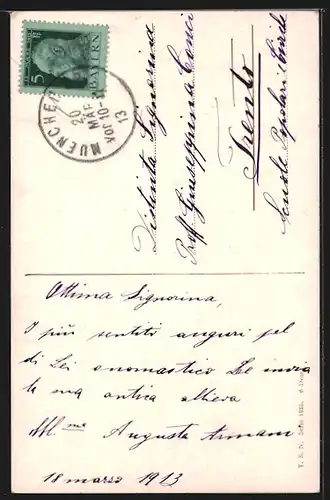 5 PF
BAYERN
MUENCHEN
20
MAR
VOR 10-11
13
Distinta Signorina
Prof. Giuseppina Cenci
Trento
Scuole Popolari Civiche
Ottima Signorina,
I più sentiti auguri pel
di Lei onomastico Le invia
la sua antica allieva
Aff.ma Augusta Armani
18 marzo 1913
T. S. N. Serie